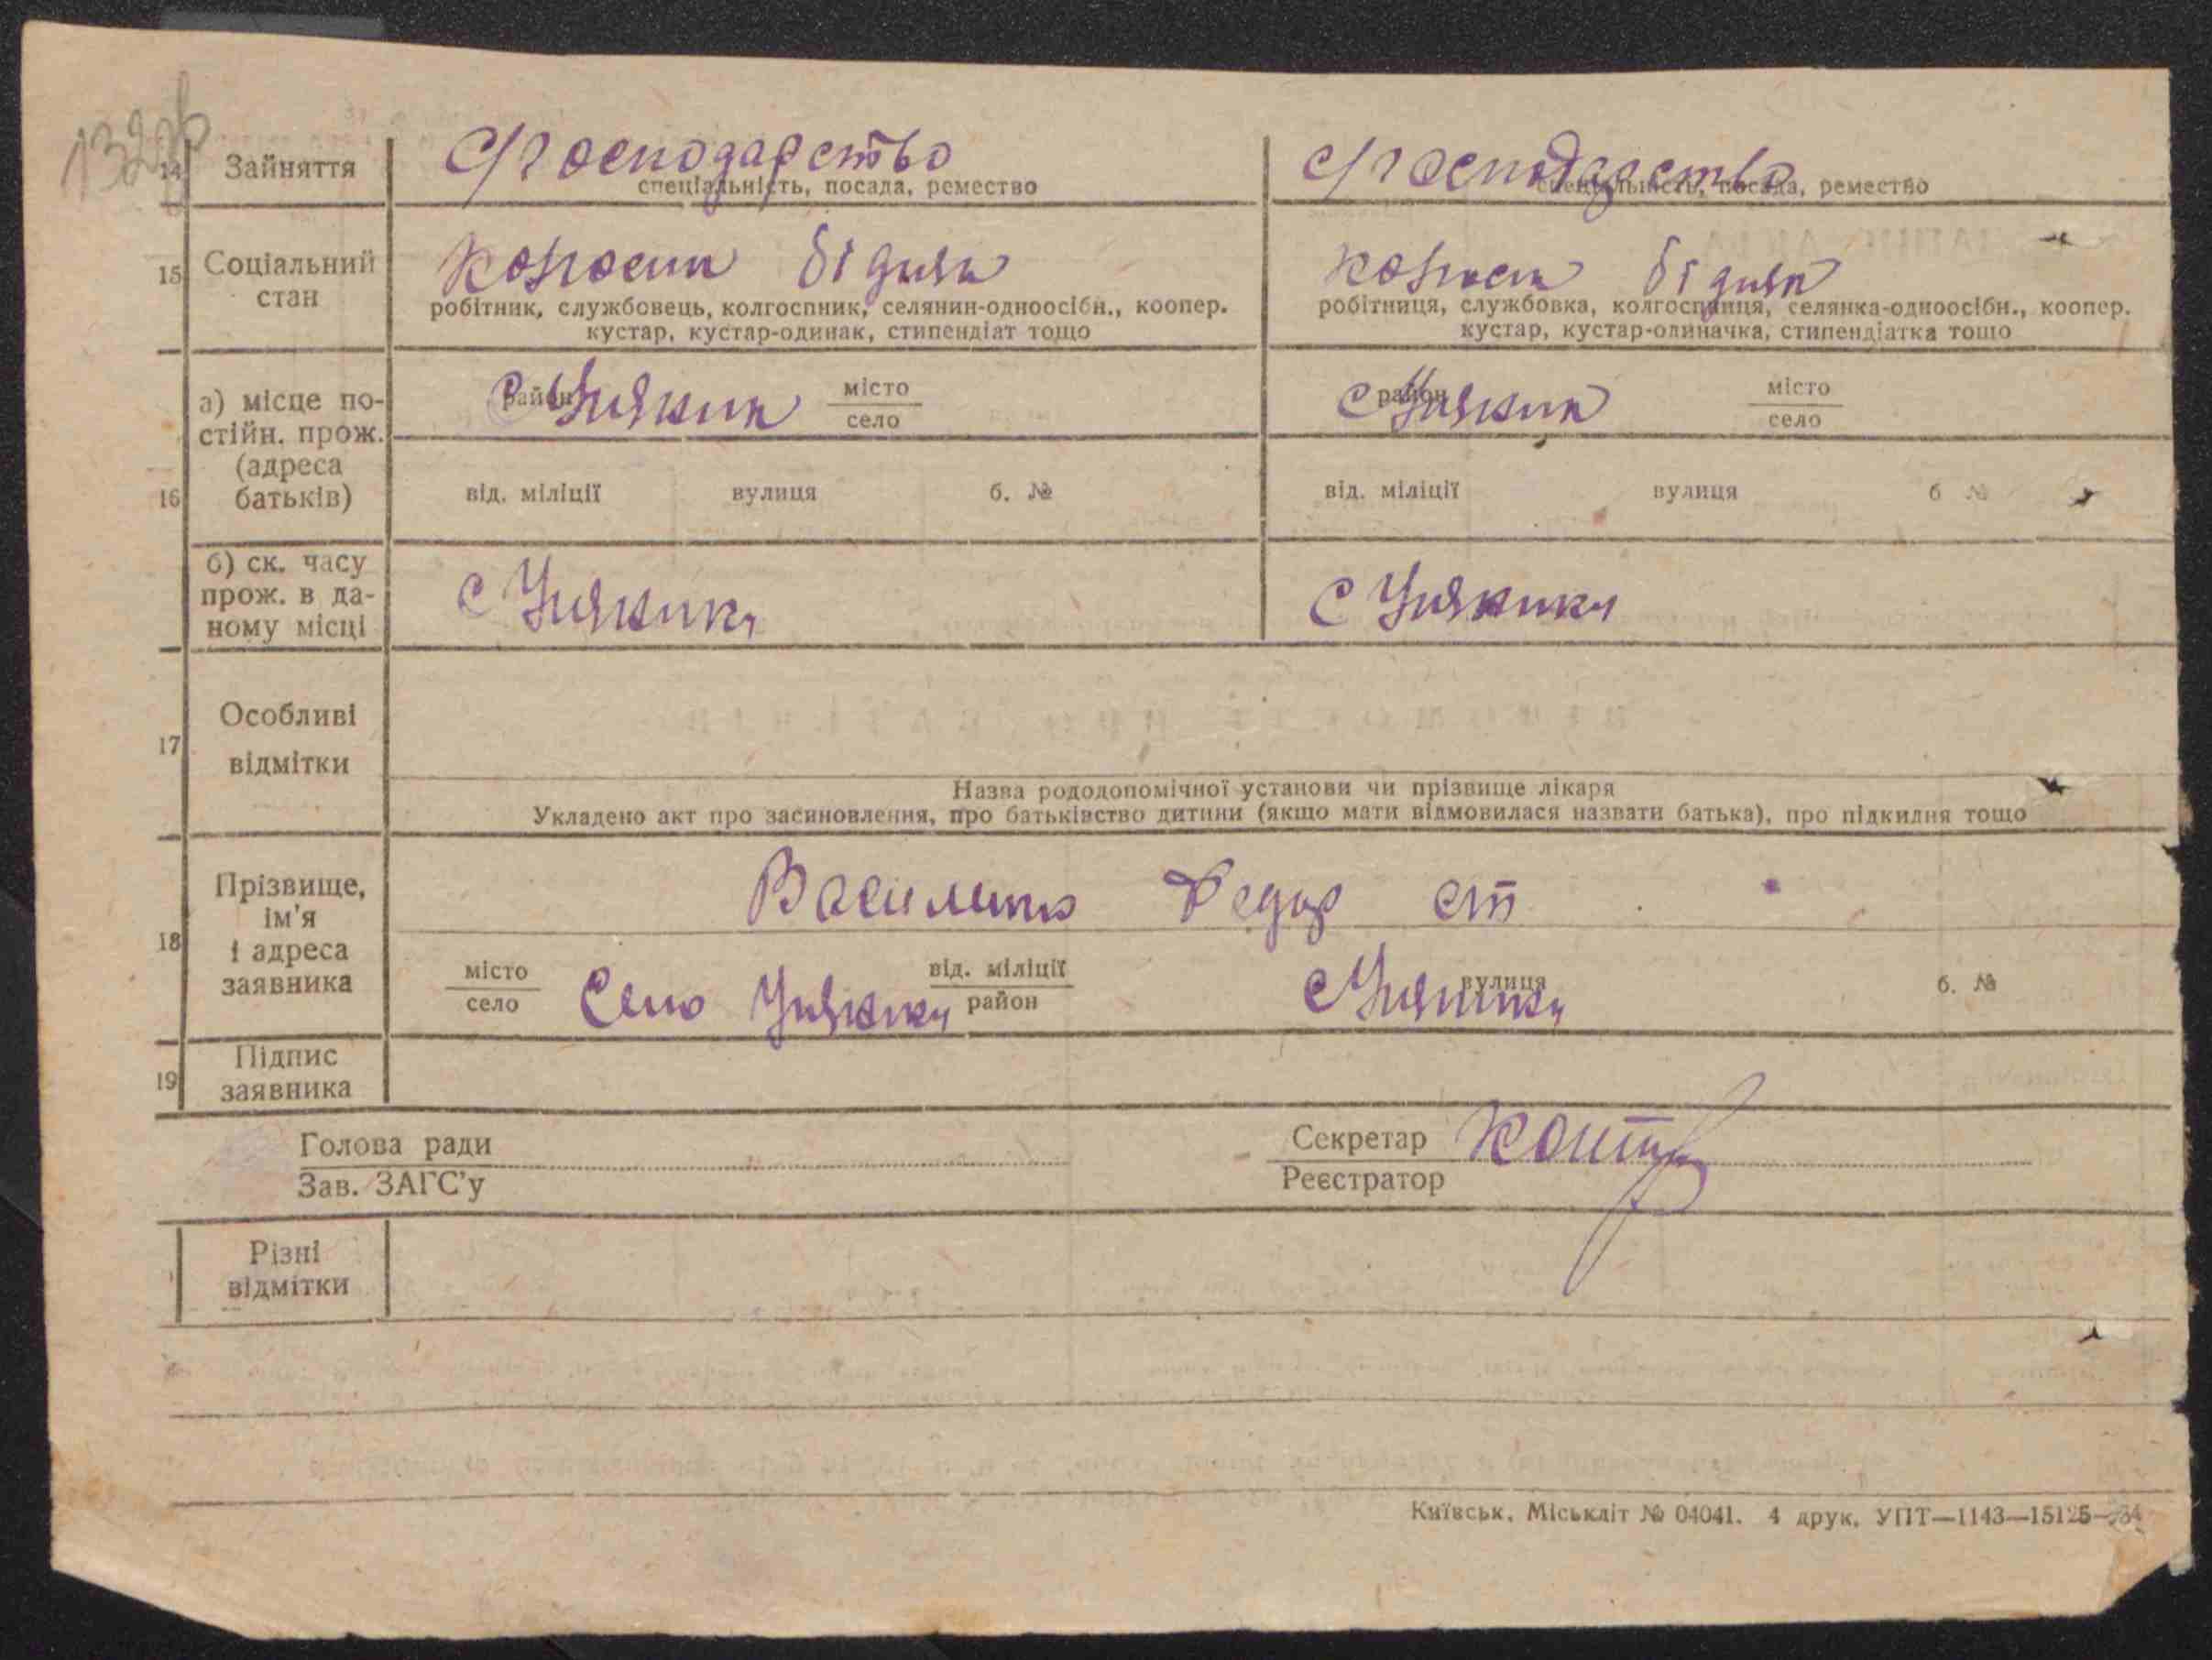 132
14 Зайняття с/господарство с/господарство
спеціальність, посада, ремество спеціальність, посада, ремество
15 Соціальний стан колгосп бідняк колгосп бідняк
робітник, службовець, колгоспник, селянин-одноосібн., коопер. робітниця, службовка, колгоспниця, селянка-одноосібн., коопер.
кустар, кустар-одинак, стипендіат тощо кустар, кустар-одиначка, стипендіатка тощо
16 а) місце по-
стійн. прож.
(адреса
батьків)
район с місто
село
район с місто
село
від. міліції вулиця б. № від. міліції вулиця б №
б) ск. часу
прож. в да-
ному місці
с с
17 Особливі
відмітки
Назва рододопомічної установи чи прізвище лікаря
Укладено акт про засиновлення, про батьківство дитини (якщо мати відмовилася назвати батька), про підкидня тощо
18 Прізвище,
ім'я
і адреса
заявника
Федор ст
місто
село Село від. міліції
район с вулиця б. №
19 Підпис
заявника
Голова ради Секретар
Зав. ЗАГС'у Реєстратор
Різні
відмітки
Київськ. Міськліт № 04041. 4 друк. УПТ—1143—15125—34